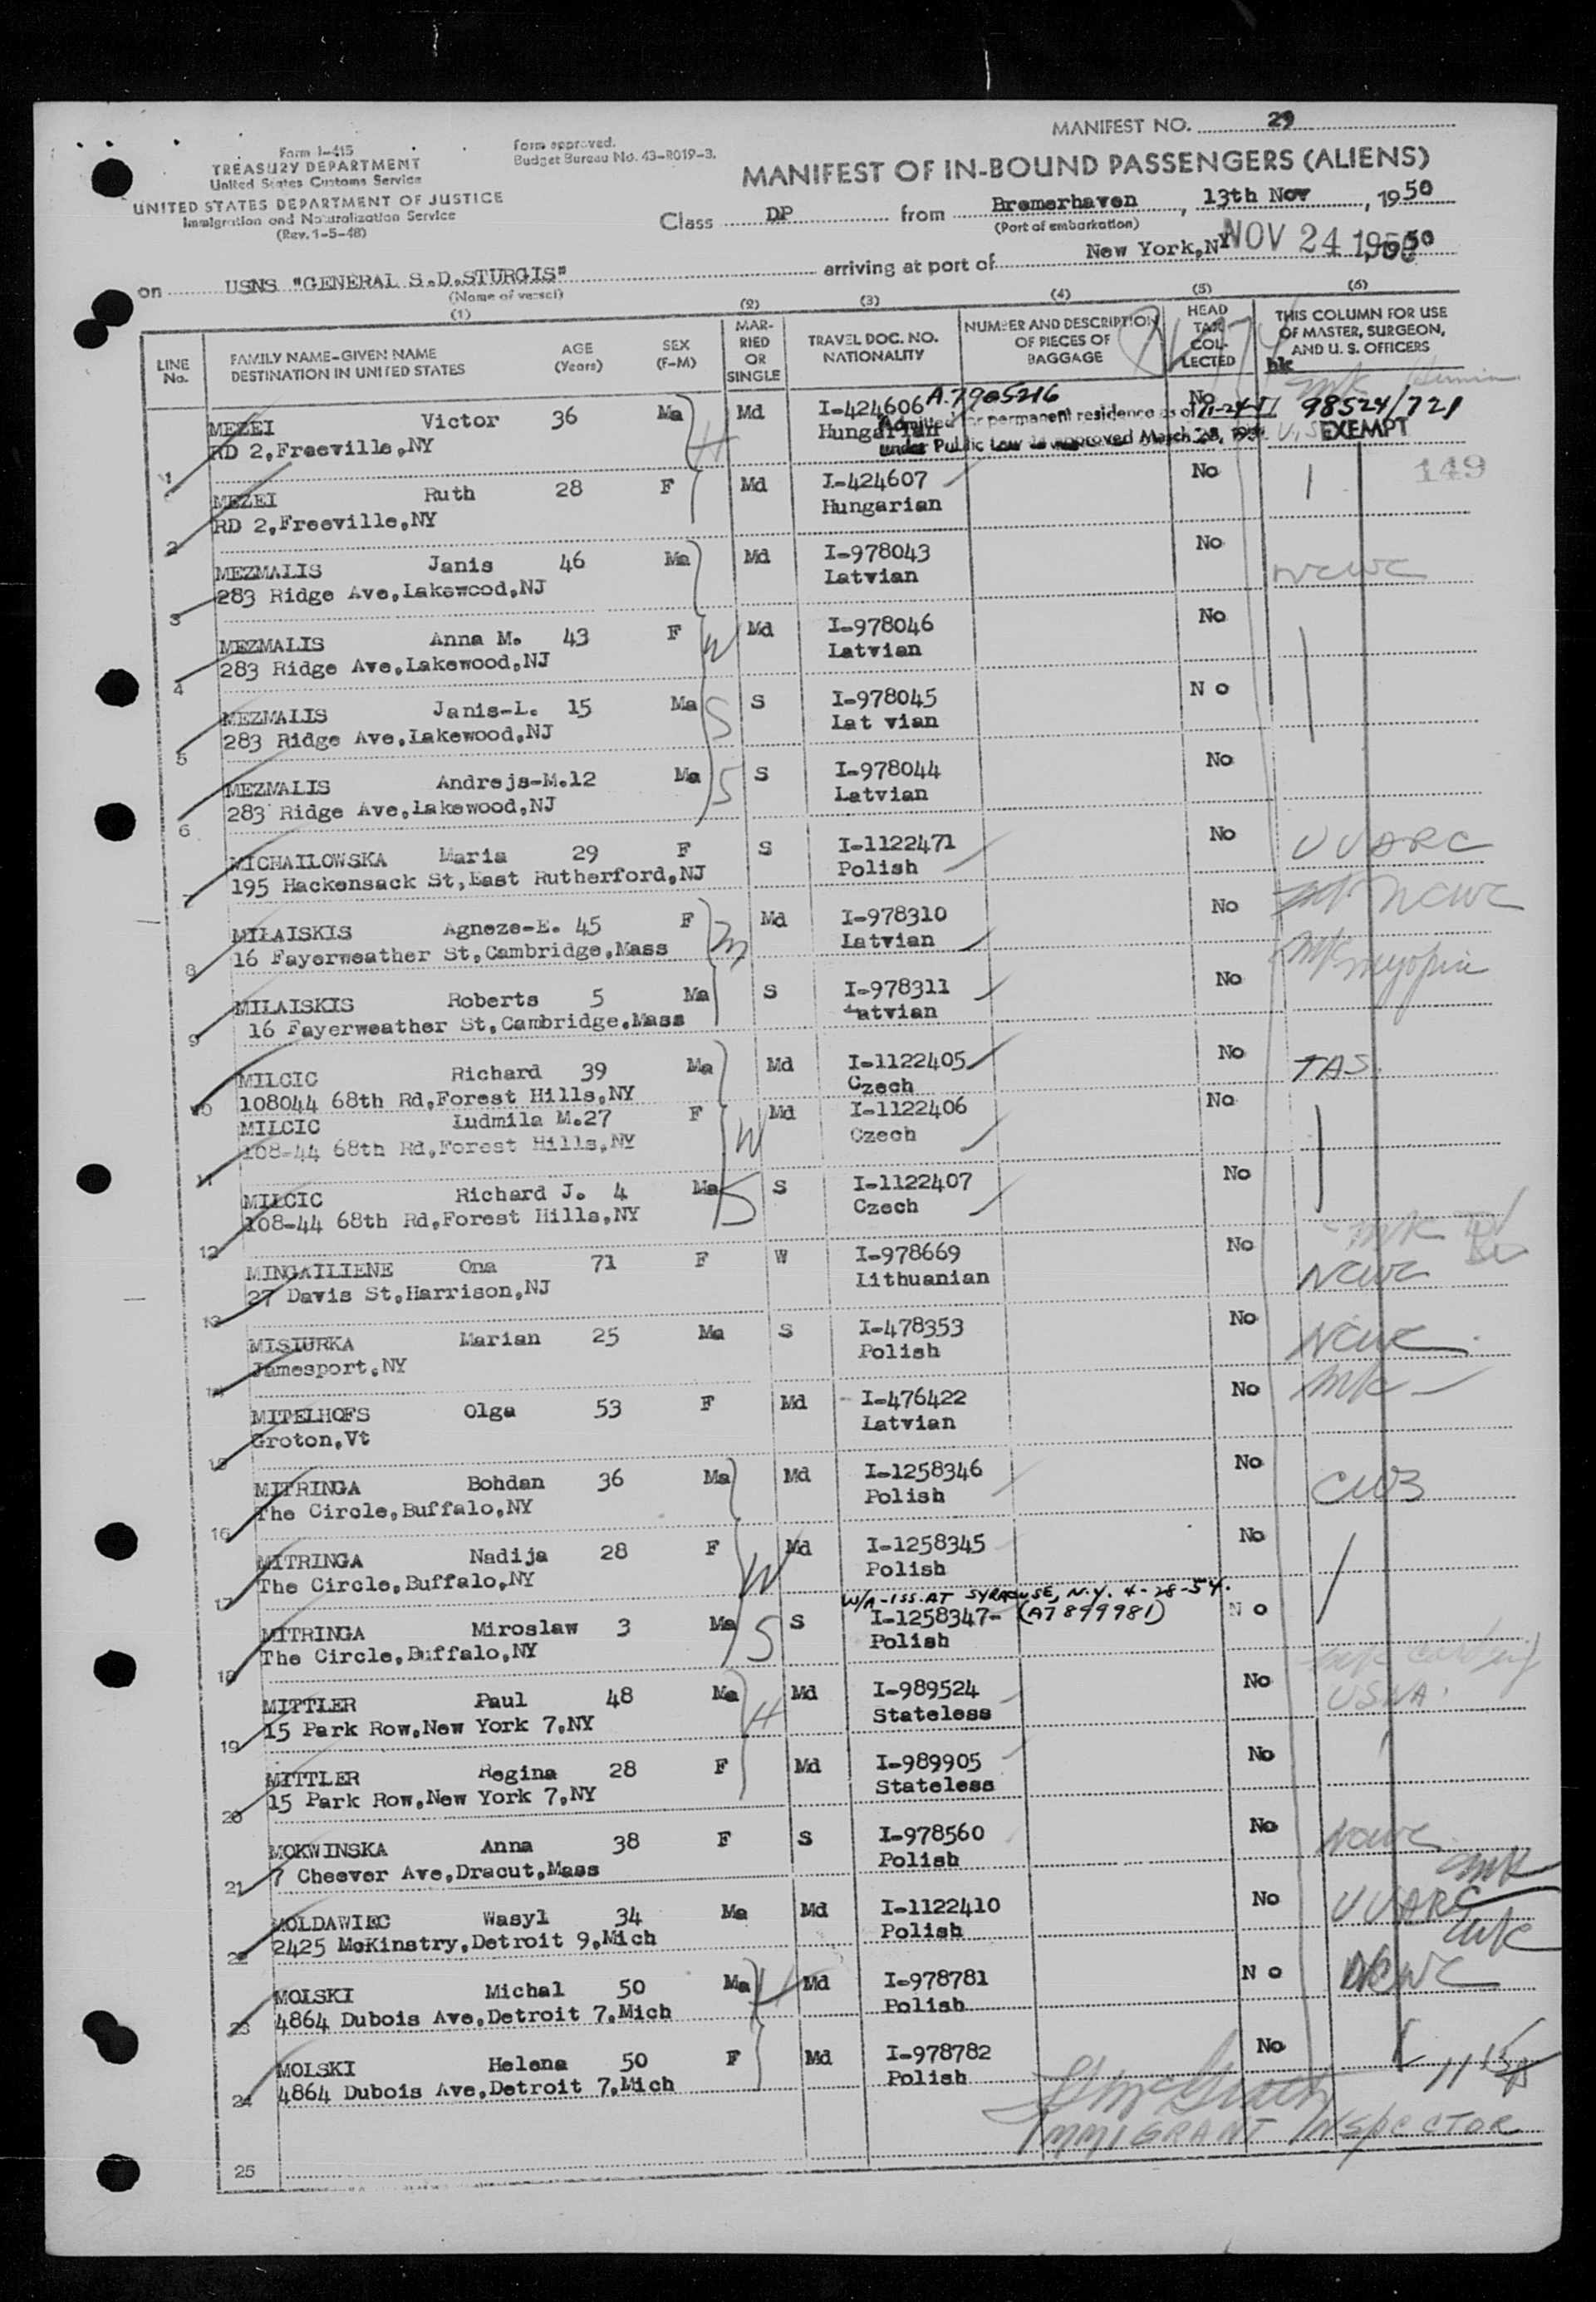 MANIFEST NO. 29
Form I-415
TREASURY DEPARTMENT
United States Customs Service
UNITED STATES DEPARTMENT OF JUSTICE
Immigration and Naturalization Service
(Rev. 1-5-48)
Form approved.
Budget Bureau No. 43-R019-3.
MANIFEST OF IN-BOUND PASSENGERS (ALIENS)
Class DP from Bremerhaven, 13th Nov, 1950
(Port of embarkation)
on USNS "GENERAL S.D.STURGIS" arriving at port of New York,NY NOV 24 1950, 1950
(Name of vessel)
(1) (2) (3) (4) (5) (6)
LINE No.
FAMILY NAME—GIVEN NAME
DESTINATION IN UNITED STATES
AGE (Years)
SEX (F-M)
MAR-RIED OR SINGLE
TRAVEL DOC. NO.
NATIONALITY
NUMBER AND DESCRIPTION OF PIECES OF BAGGAGE
HEAD TAX COL-LECTED
THIS COLUMN FOR USE OF MASTER, SURGEON, AND U. S. OFFICERS
MEZEI Victor 36 Ma H Md I-424606 A-7905216 No 98524/721
Admitted for permanent residence as of
1 RD 2,Freeville,NY Hungarian under Public Law approved March 28, EXEMPT
149
MEZEI Ruth 28 F Md I-424607 No
2 RD 2,Freeville,NY Hungarian
MEZMALIS Janis 46 Ma Md I-978043 No NCWC
3 283 Ridge Ave,Lakewood,NJ Latvian
MEZMALIS Anna M. 43 F W Md I-978046 No
4 283 Ridge Ave,Lakewood,NJ Latvian
MEZMALIS Janis-L. 15 Ma S S I-978045 N o
5 283 Ridge Ave,Lakewood,NJ Lat vian
MEZMALIS Andrejs-M.12 Ma S S I-978044 No
6 283 Ridge Ave,Lakewood,NJ Latvian
MICHAILOWSKA Maria 29 F S I-1122471 No UUARC
7 195 Hackensack St,East Rutherford,NJ Polish
MILAISKIS Agneze-E. 45 F M Md I-978310 No NCWC
8 16 Fayerweather St,Cambridge,Mass Latvian
MK myopia
MILAISKIS Roberts 5 Ma S I-978311 No
9 16 Fayerweather St,Cambridge,Mass Latvian
MILCIC Richard 39 Ma Md I-1122405 No TAS
10 108044 68th Rd,Forest Hills,NY Czech
MILCIC Ludmila M.27 F W Md I-1122406 No
11 108-44 68th Rd,Forest Hills,NY Czech
MILCIC Richard J. 4 Ma S S I-1122407 No
12 108-44 68th Rd,Forest Hills,NY Czech
MK
MINGAILIENE Ona 71 F W I-978669 No NCWC
13 27 Davis St,Harrison,NJ Lithuanian
MISIURKA Marian 25 Ma S I-478353 No NCWC
14 Jamesport,NY Polish
MITELHOFS Olga 53 F Md I-476422 No MK
15 Groton,Vt Latvian
MITRINGA Bohdan 36 Ma Md I-1258346 No CWS
16 The Circle,Buffalo,NY Polish
MITRINGA Nadija 28 F W Md I-1258345 No
17 The Circle,Buffalo,NY Polish
W/A-ISS. AT SYRACUSE, N.Y. 4-28-54.
MITRINGA Miroslaw 3 Ma S S I-1258347- (A7899981) N o
18 The Circle,Buffalo,NY Polish
MITTLER Paul 48 Ma H Md I-989524 No USNA
19 15 Park Row,New York 7,NY Stateless
MITTLER Regina 28 F Md I-989905 No
20 15 Park Row,New York 7,NY Stateless
MOKWINSKA Anna 38 F S I-978560 No NCWC
21 7 Cheever Ave,Dracut,Mass Polish
MK
MOLDAWIEC Wasyl 34 Ma Md I-1122410 No UUARC
22 2425 McKinstry,Detroit 9,Mich Polish
MK
MOLSKI Michal 50 Ma H Md I-978781 N o NCWC
23 4864 Dubois Ave,Detroit 7,Mich Polish
MOLSKI Helena 50 F Md I-978782 No
24 4864 Dubois Ave,Detroit 7,Mich Polish
IMMIGRANT INSPECTOR
25